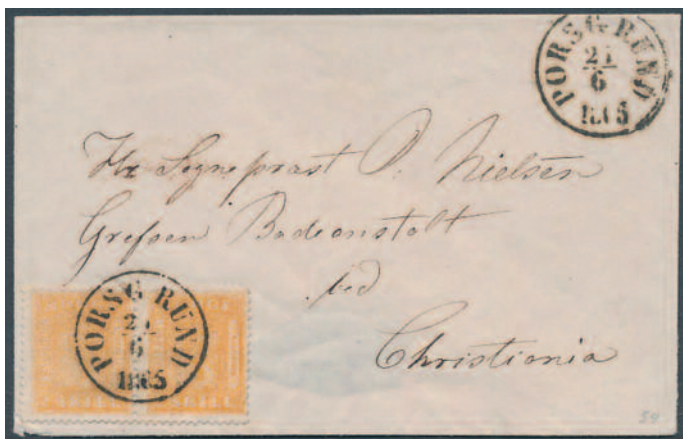 PORSGRUND
21
6
1865
Hr Sogneprast O. Nielsen
Grefsen Badeanstalt
ved
Christiania
PORSGRUND
21
6
1865